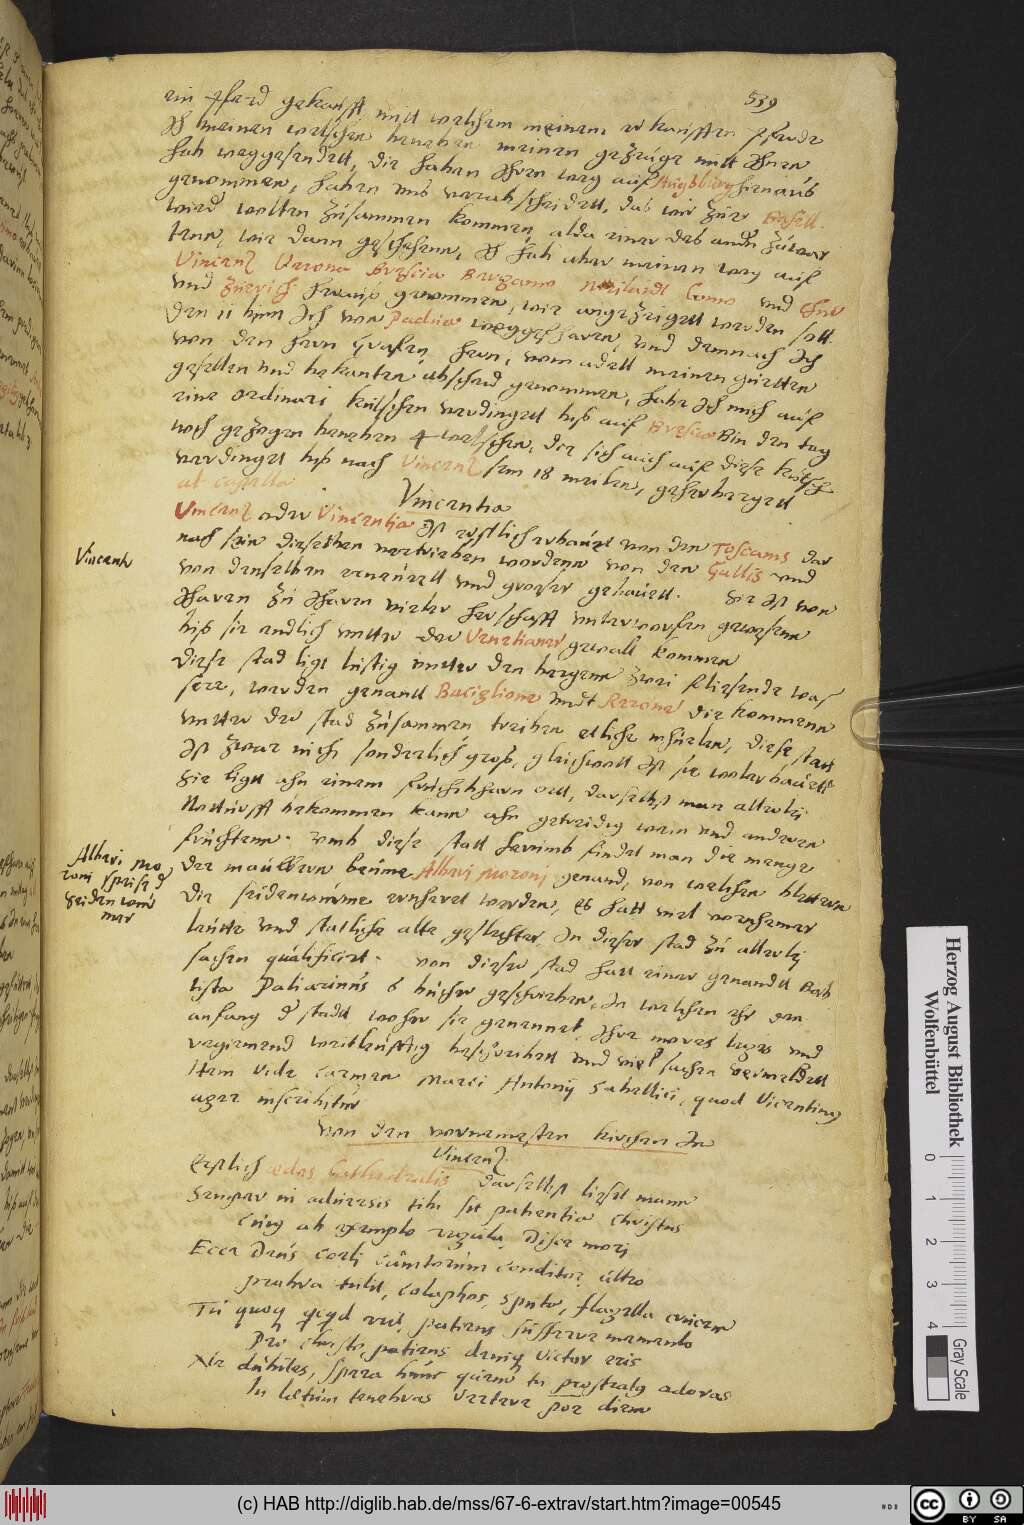 539
ein pferd gekaufft, mitt welchem meinem erkaufften pferde
Ich meinen welschen beneben meinen gezeuge mitt Ihnen
hab weggesendett, die haben Ihren weg auff Augsburg hinaus
genommen, haben uns verabscheidett, das wir zur Basell
wieder wolten zusammen kommen, alda einer des andern zuwar
tenn, wie dann geschehenn, Ich hab aber meinen weg auff
Vincenz Verona Brescia Bergamo Meilandt Como und Chur
und Zurich hinaus genommen, wie angezeigett werden soll
den 11 Ich von Padua weggefharen, und demnach Ich
von den hern graffen, hern, vom adell meinen gutten
gesellen und bekanten abscheid genommen, habe Ich mich auff
eine ordinari kutschen verdingett biß auff Brescia Bin den tag
noch gezogen beneben 4 welschen, die sich auch auff diese kutsch
verdinget biß nach Vincenz sein 18 meilen, geherberget
al capello
Vincentia
Vincenz oder Vincentia Ist erstlich erbauet von den Toscanis dar
nach sein dieselben vertrieben wordenn von den Gallis und
von denselben erneurett und groser gebauett. Sie Ist von
Jharen zu Jharen vieler herschafft unterworfen gewesenn
biß sie endlich unter der Venetianer gewalt kommen
Diese stad ligt lustig unter den bergenn zwei fliesende was
sere, werden genantt Baciglione undt Rerone die kommenn
unter der stad zusammen treiben etliche mhulen, diese stad
Ist zwar nich sonderlich groß, gleichwoll Ist sie woler bauett
Sie ligtt ahn einem fruchtbharn ortt, daselbst man allerlej
Notturfft bekommen kann ahn getreidig wein und anderen
fruchtenn. umb diese statt herumb findet man die menge
der maulbern beume Albari moroni genand, von welchen blettern
die seidenwurme ernheret werden, es hatt viel vornhemer
leutte und statliche alte geslechter In dieser stad zu allerlej
sachen qualificirt. von dieser stad hatt einer genandtt Bab
tista Paliarinus 6 bucher geschrieben, In welchen ehr den
anfang der stadtt woher sie genennet, Ihre mores leges und
regiemend weitleufftig beschreibett und viel sachen vermeldett
Item vide carmen Marci Antonij Sabellici, quod Vicentinus
ager inscribitur
Von den vornemesten kirchen In
Vincenz
Erstlich aedes Cathedralis daselbst lieset mann
Semper in adversis tibi sit patientia Christus
Cuius ab exemplo regula disce mori
Ecce Deus coeli cunctorum conditor ultro
probra tulit, colaphos, sputa, flagella crucem
Tu quoque quicquid erit patiens sufferre memento
Pro Christo, patiens denique victor eris
Ne dubites, spera hunc quem tu prostratus adoras
In laetum tenebras vertere posse diem
Vincentz
Albari mo
roni speise der
seiden wur
mer
Herzog August Bibliothek
Wolfenbüttel
0 1 2 3 4
Gray Scale
(c) HAB http://diglib.hab.de/mss/67-6-extrav/start.htm?image=00545
cc BY SA